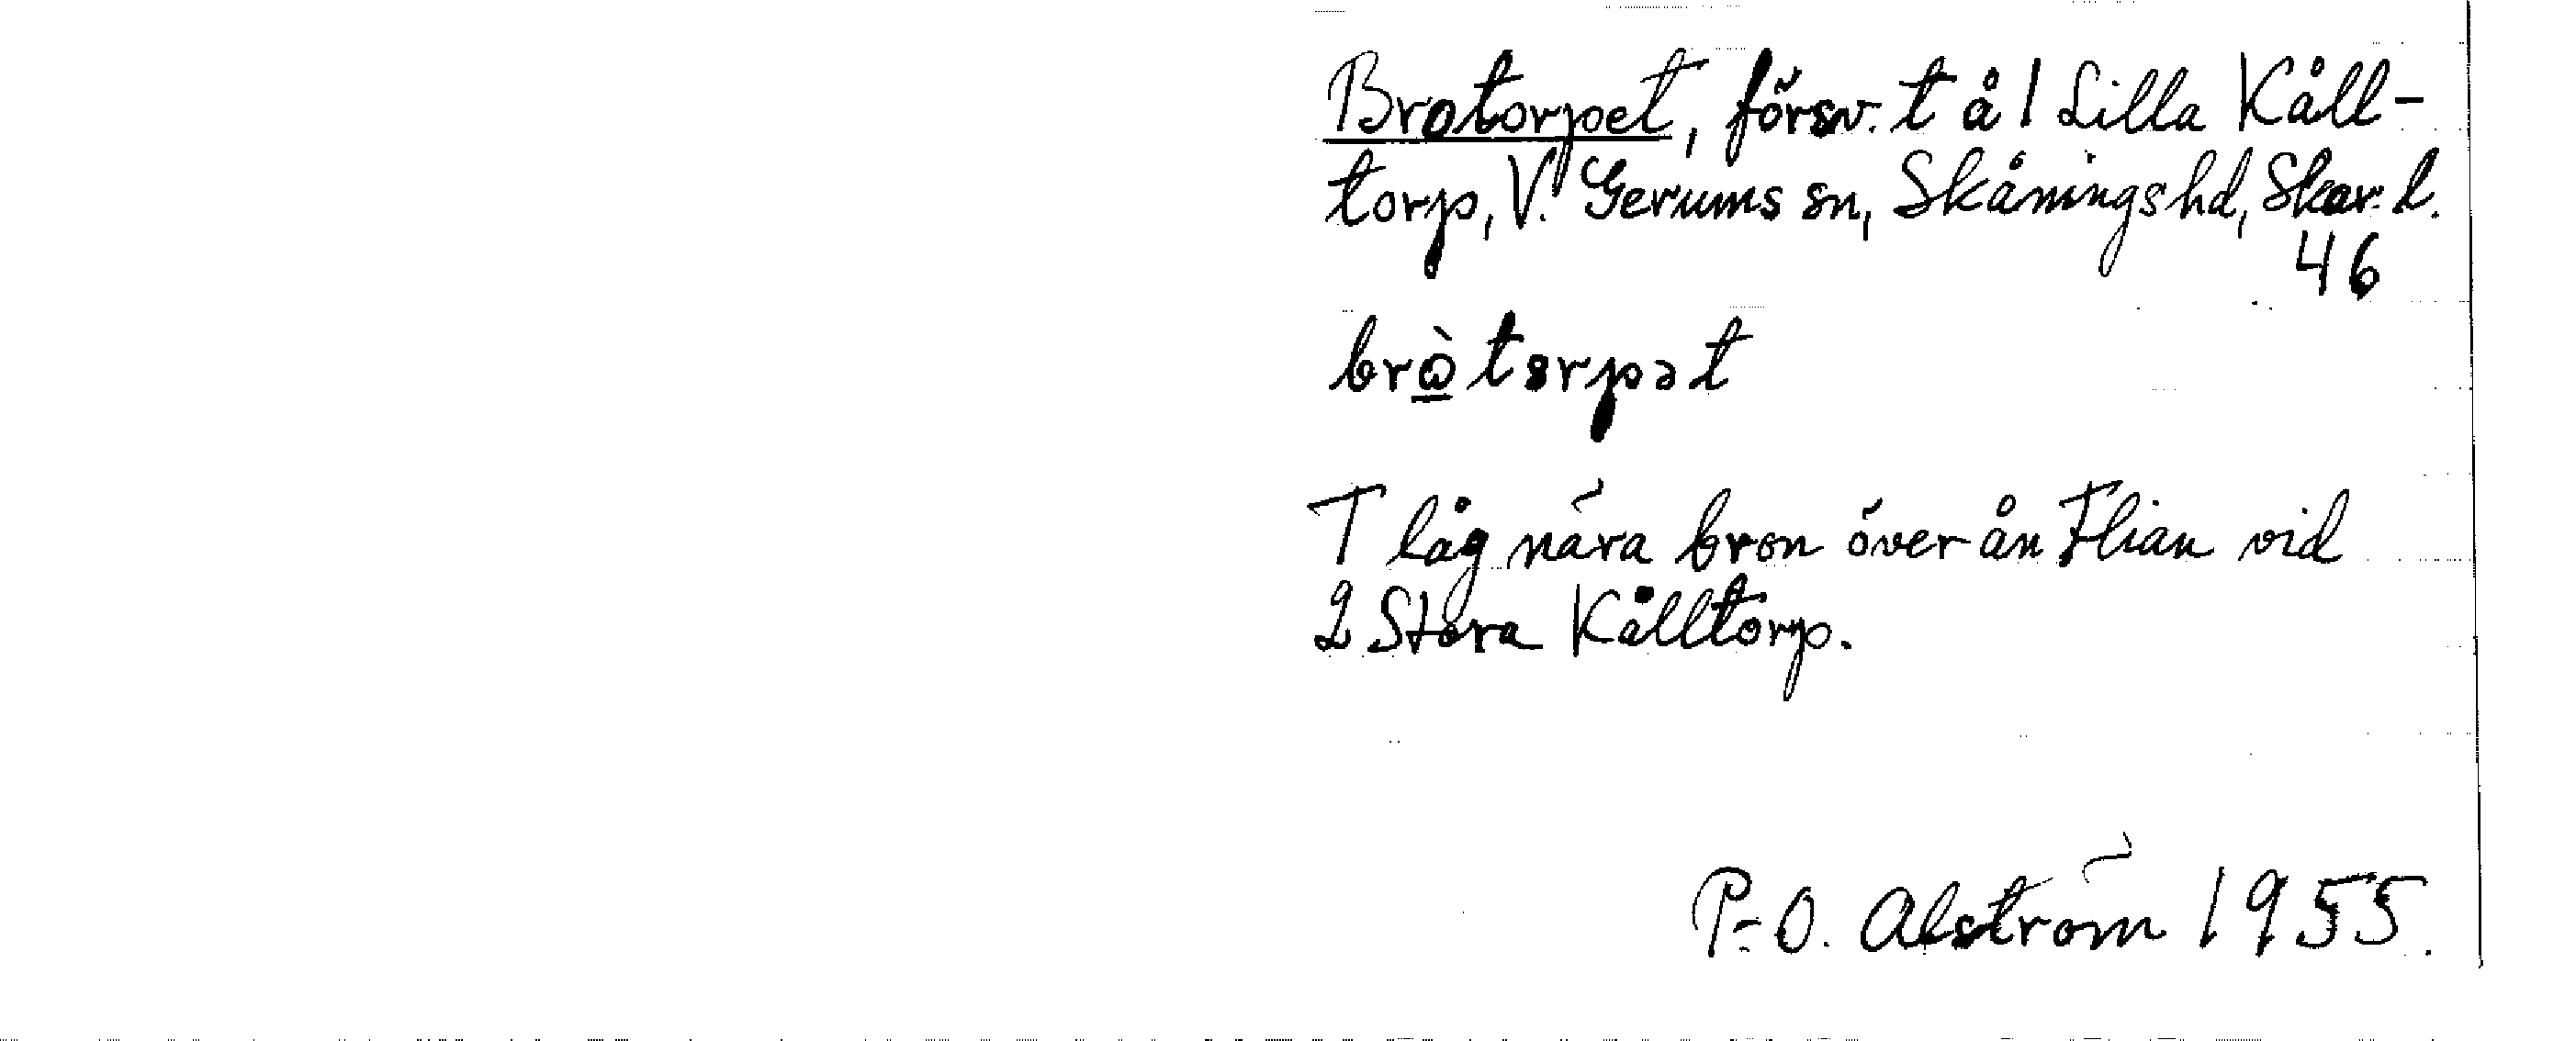 Brotorpet, försv. t å 1 Lilla Kåll-
torp, V. Gerums sn, Skånings hd, Skar. l.
46
bròtorpət
T låg nära bron över ån Flian vid
2 Stora Kålltorp.
P-O. Alström 1955.